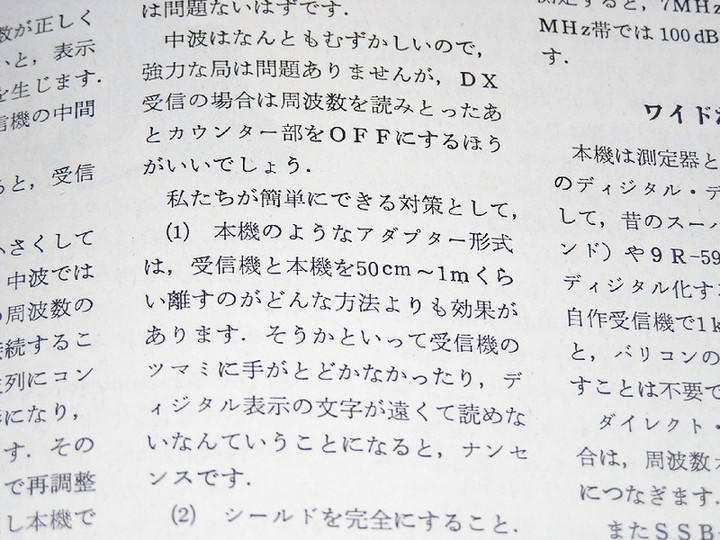 数が正しく
いと，表示
を生じます．
信機の中間
ると，受信
小さくして
中波では
周波数の
接続するこ
列にコン
になり，
す．その
で再調整
し本機で
は問題ないはずです．
中波はなんともむずかしいので，
強力な局は問題ありませんが，DX
受信の場合は周波数を読みとったあ
とカウンター部をOFFにするほう
がいいでしょう．
私たちが簡単にできる対策として，
(1) 本機のようなアダプター形式
は，受信機と本機を50cm～1mくら
い離すのがどんな方法よりも効果が
あります．そうかといって受信機の
ツマミに手がとどかなかったり，デ
ィジタル表示の文字が遠くて読めな
いなんていうことになると，ナンセ
ンスです．
(2) シールドを完全にすること．
すると，7MH
MHz帯では100dB
す．
ワイド
本機は測定器と
のディジタル・デ
して，昔のスーパ
ンド）や9R-59
ディジタル化す
自作受信機で1k
と，バリコンの
すことは不要で
ダイレクト・
合は，周波数
につなぎます．
またSSB